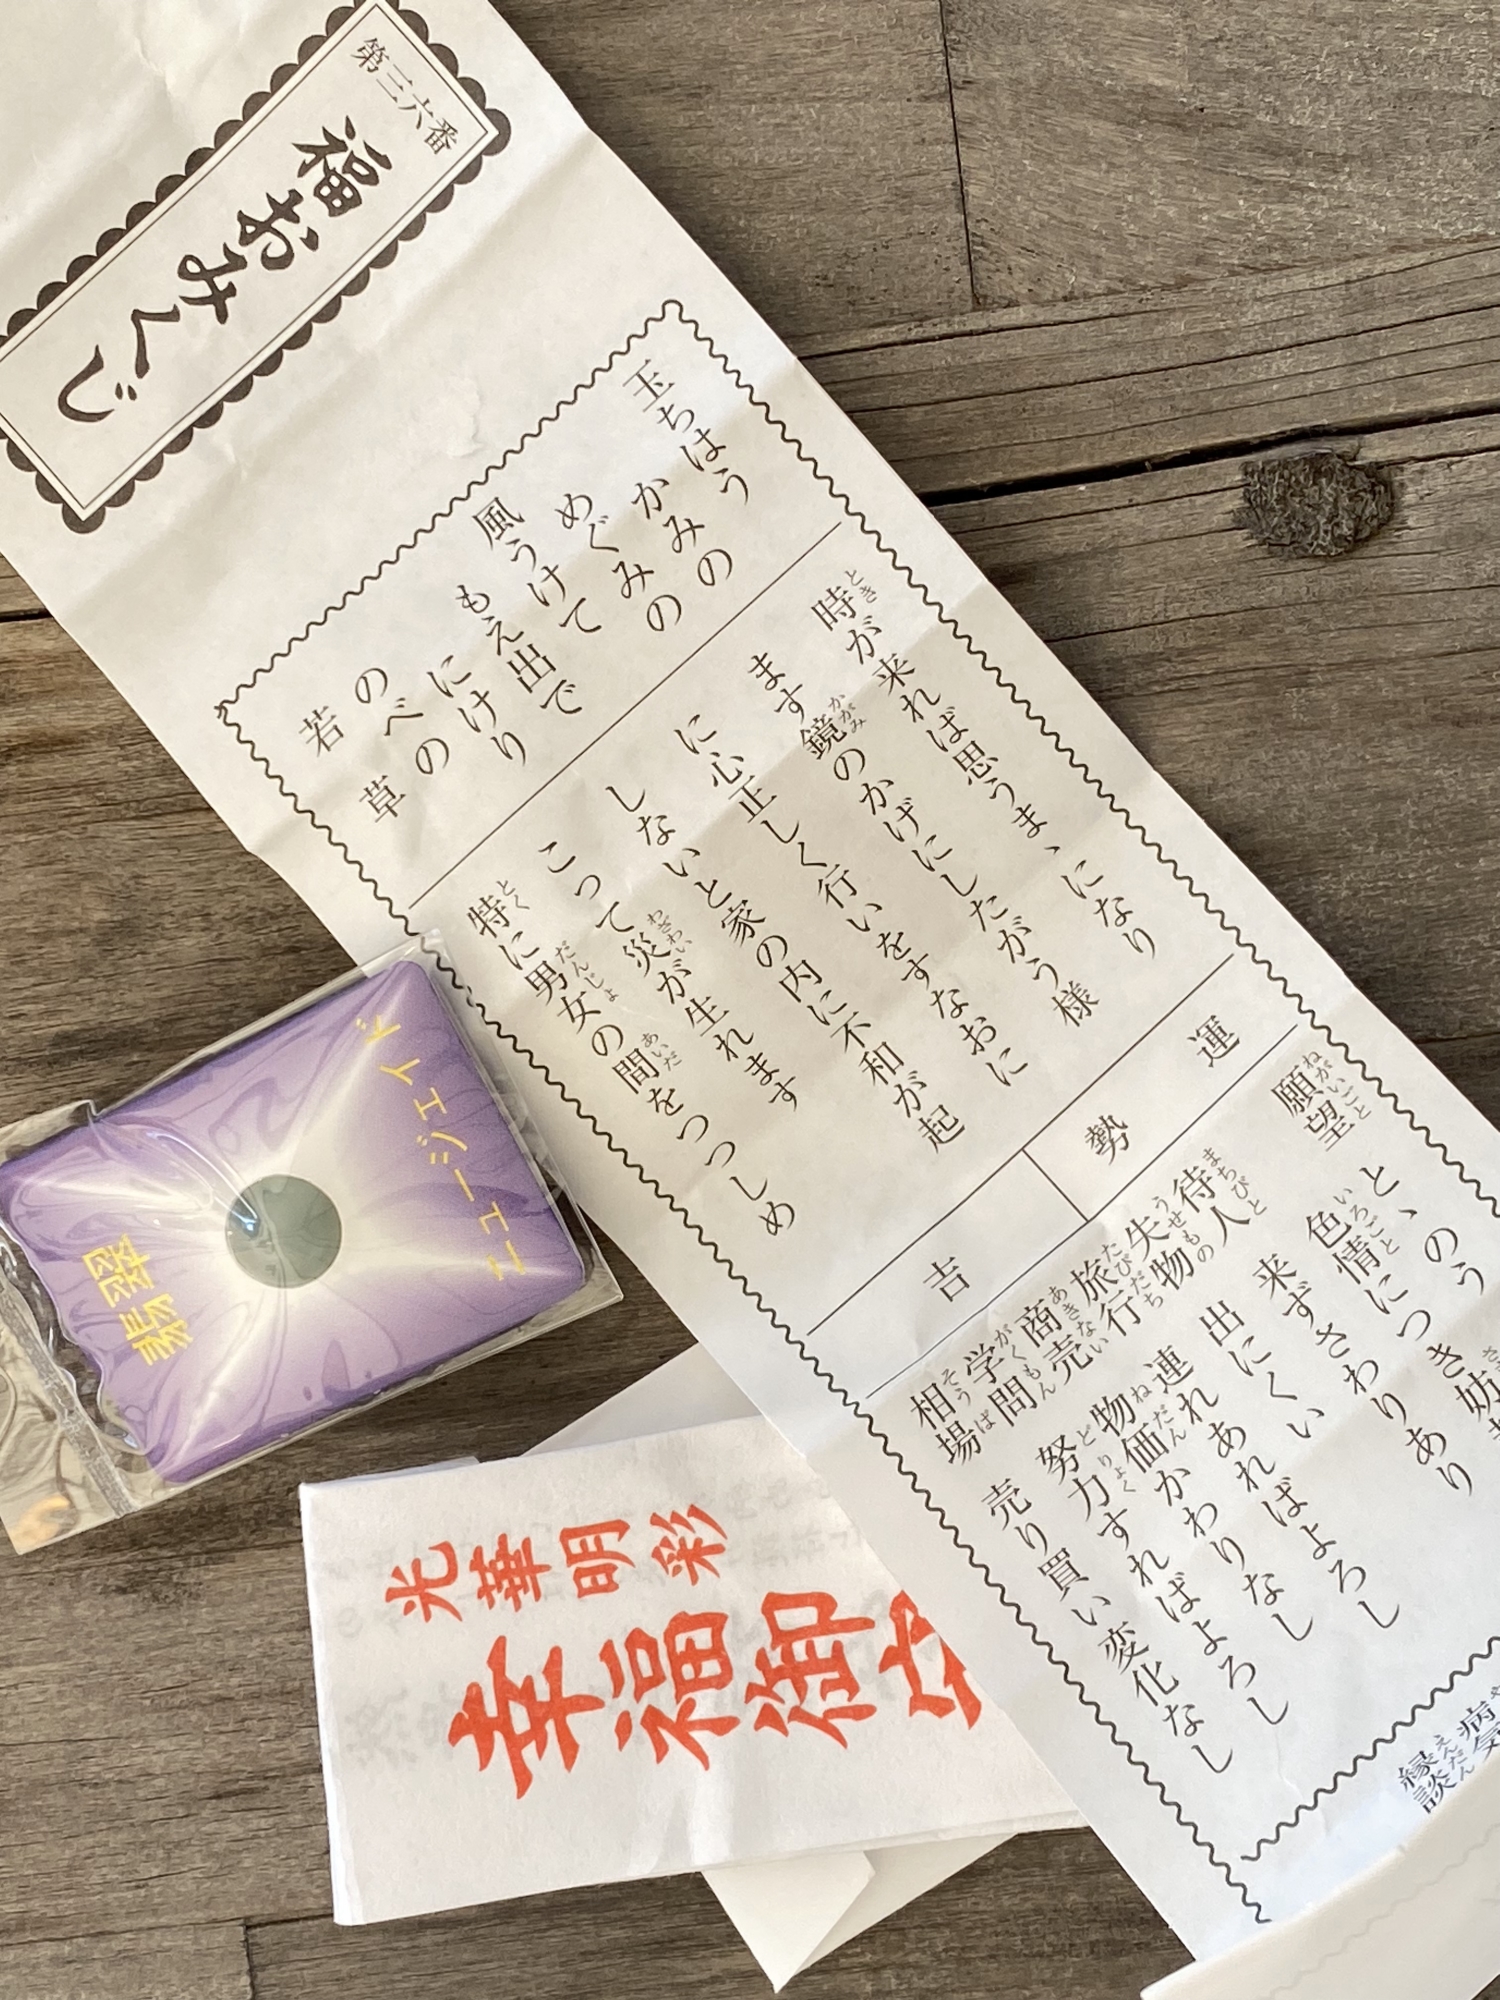 第三六番
福おみくじ
玉ちはう
かみの
めぐみの
風うけて
もえ出で
にけり
のべの
若草
時が来れば思うまゝになり
ます鏡のかげにしたがう様
に心正しく行いをすなおに
しないと家の内に不和が起
こって災が生れます
特に男女の間をつつしめ
運勢
吉
願望
とゝのう
色情につき妨
待人
来ずさわりあり
失物
出にくい
旅行
連れあればよろし
商売
物価かわりなし
学問
努力すればよろし
相場
売り買い変化なし
病気
縁談
ニュージェイド
翡翠
光華明彩
幸福御守